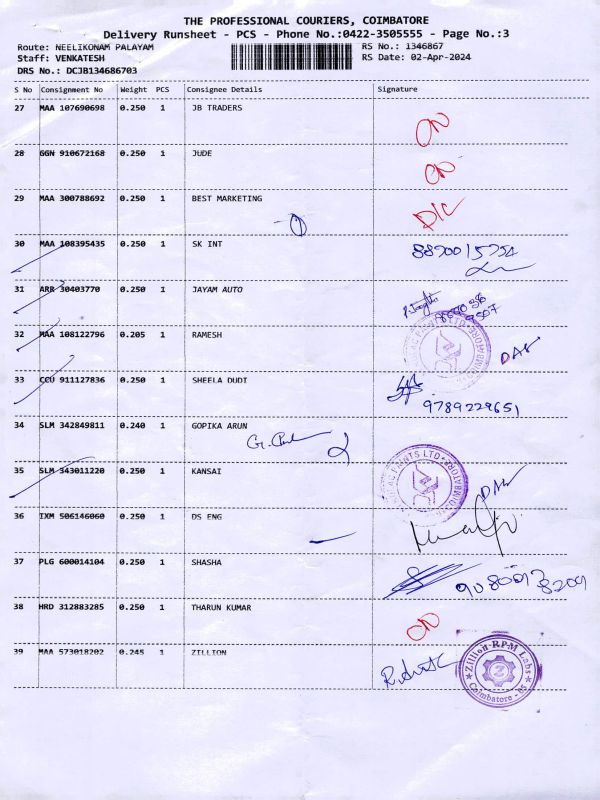 THE PROFESSIONAL COURIERS, COIMBATORE
Delivery Runsheet - PCS - Phone No.:0422-3505555 - Page No.:3
Route: NEELIKONAM PALAYAM RS No.: 1346867
Staff: VENKATESH RS Date: 02-Apr-2024
DRS No.: DCJB134686703
S No Consignment No Weight PCS Consignee Details Signature
27 MAA 107690698 0.250 1 JB TRADERS
28 GGN 910672168 0.250 1 JUDE
29 MAA 300788692 0.250 1 BEST MARKETING D/C
30 MAA 108395435 0.250 1 SK INT
31 ARR 30403770 0.250 1 JAYAM AUTO
32 MAA 108122796 0.205 1 RAMESH
33 CCU 911127836 0.250 1 SHEELA DUDI
9789229651
34 SLM 342849811 0.240 1 GOPIKA ARUN
35 SLM 343011220 0.250 1 KANSAI
36 IXM 506146060 0.250 1 DS ENG
37 PLG 600014104 0.250 1 SHASHA
38 HRD 312883285 0.250 1 THARUN KUMAR
39 MAA 573018202 0.245 1 ZILLION
Zillion RPM Labs
Coimbatore - 05